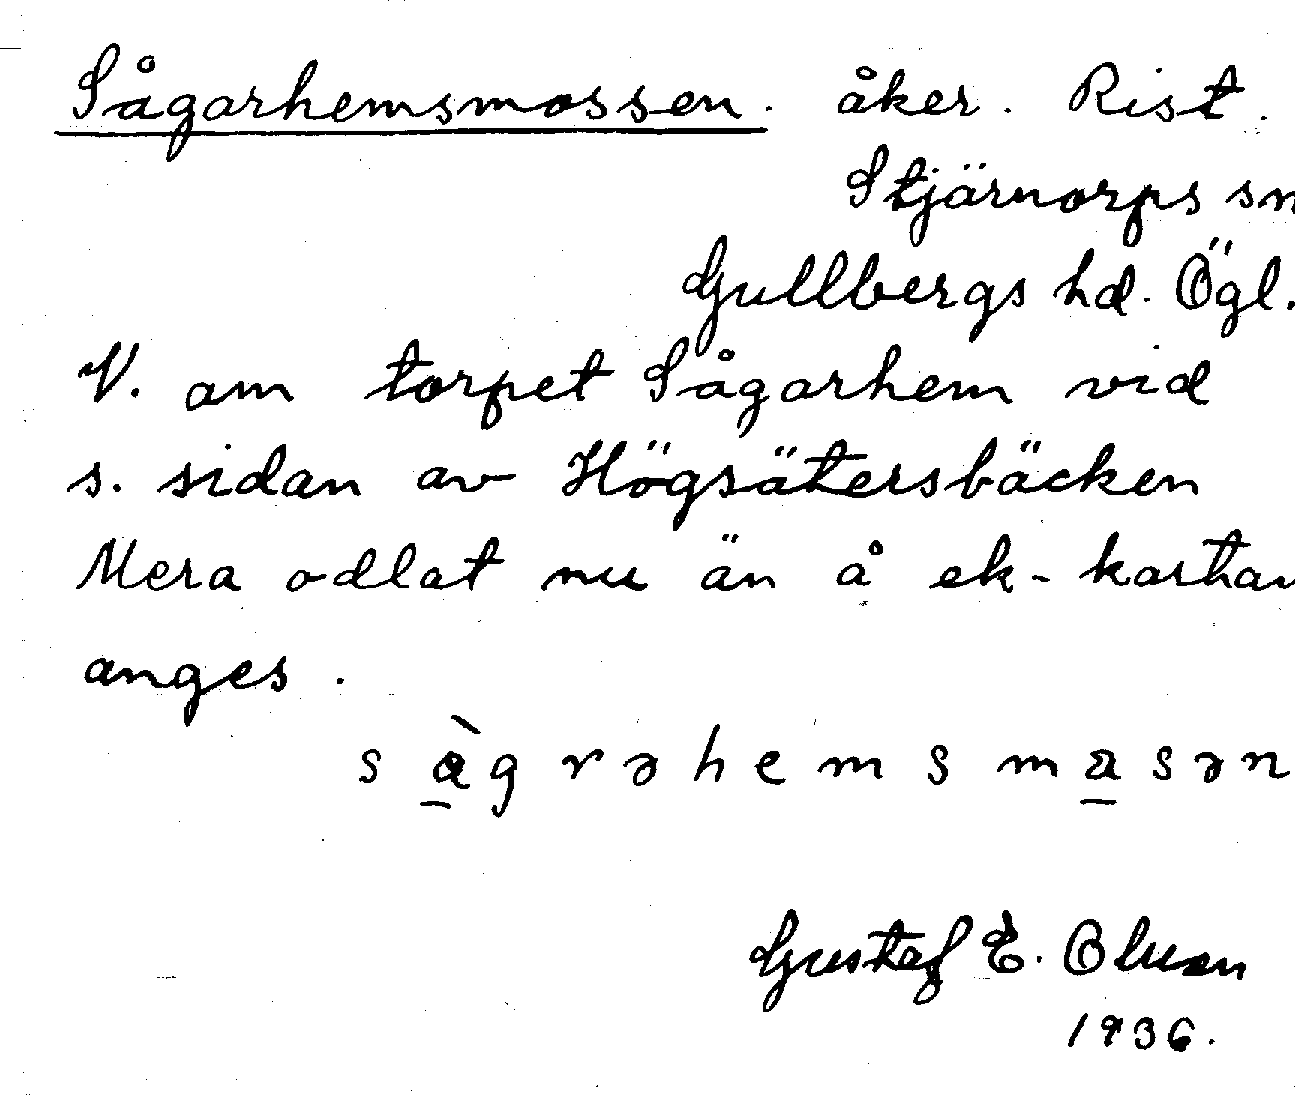 Sågarhemsmossen. åker. Rist.
Stjärnorps sn
Gullbergs hd. Ögl.
V. om torpet Sågarhem vid
s. sidan av Högsätersbäcken
Mera odlat nu än å ek-kartan
anges.
sà̲grəhemsma̲sən
Gustaf E. Olsson
1936.